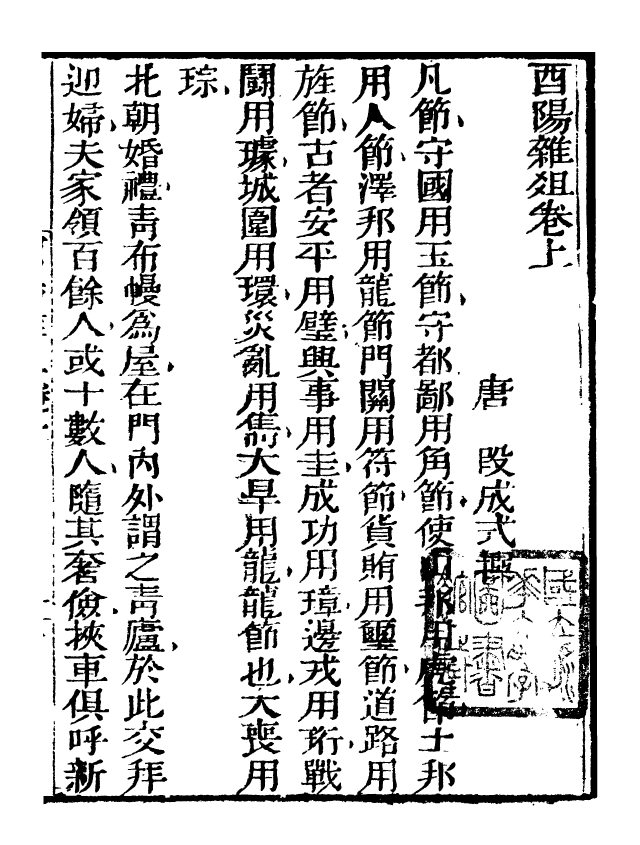 酉陽雜俎卷上
唐　段成式撰
凡節守國用玉節守都鄙用角節使山邦用虎節土邦
用人節澤邦用龍節門關用符節貨賄用璽節道路用
旌節古者安平用璧興事用圭成功用璋邊戎用珩戰
鬬用璩城圍用環災亂用雋大旱用龍龍節也大喪用
琮
北朝婚禮青布幔為屋在門內外謂之青廬於此交拜
迎婦夫家領百餘人或十數人隨其奢儉挾車俱呼新